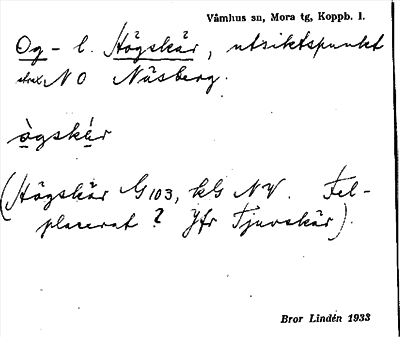 Våmhus sn, Mora tg, Koppb. l.
Og- l. Högskär, utsiktspunkt
strax NO Näsberg.
ògskér
(Högskär G 103, kG NV. Fel-
placerat? Jfr Tjuvskär).
Bror Lindén 1933